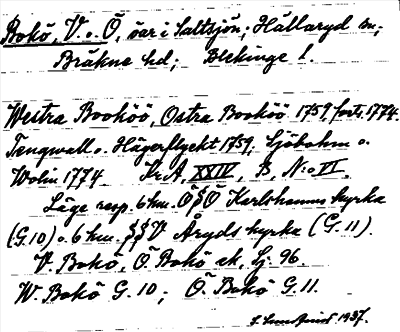 Bokö, V. o. Ö, öar i Saltsjön; Hällaryd sn;
Bräkne hd; Blekinge l.
Westra Booköö, Ostra Booköö 1759, forts. 1774.
Tengwall o. Hägerflyckt 1759. Sjöbohm o.
Wolin 1774. Kr. A. XXIV, B, N:o VI.
Läge resp. 6 km. ÖSÖ Karlshamns kyrka
(G. 10) o. 6 km. SSV Åryds kyrka (G. 11).
V. Bokö, Ö. Bokö ek, Sj. 96.
W. Bokö G. 10; Ö. Bokö G. 11.
1937.